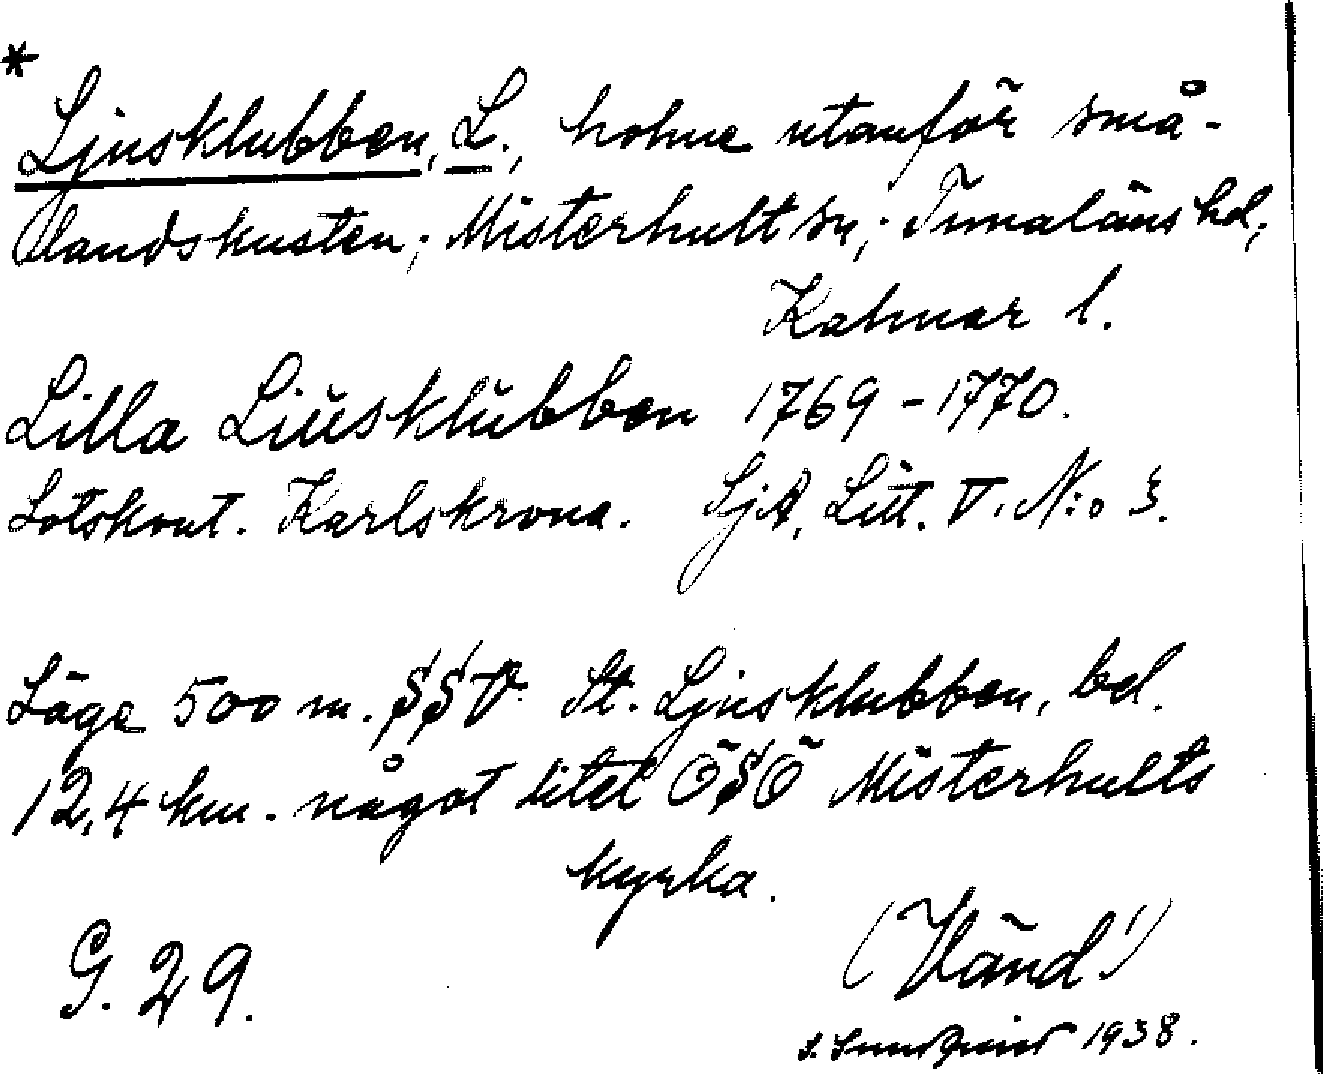 *
Ljusklubben, L., holme utanför små-
landskusten; Misterhult sn; Tunaläns hd;
Kalmar l.
Lilla Liusklubben 1769-1770.
Lotskont. Karlskrona. SjA, Litt. V. N:o 3.
Läge 500 m. SSV St. Ljusklubben, bel.
12,4 km. något litet ÖSÖ Misterhults
kyrka.
G. 29.
(Vänd!)
S. Sundqvist 1938.